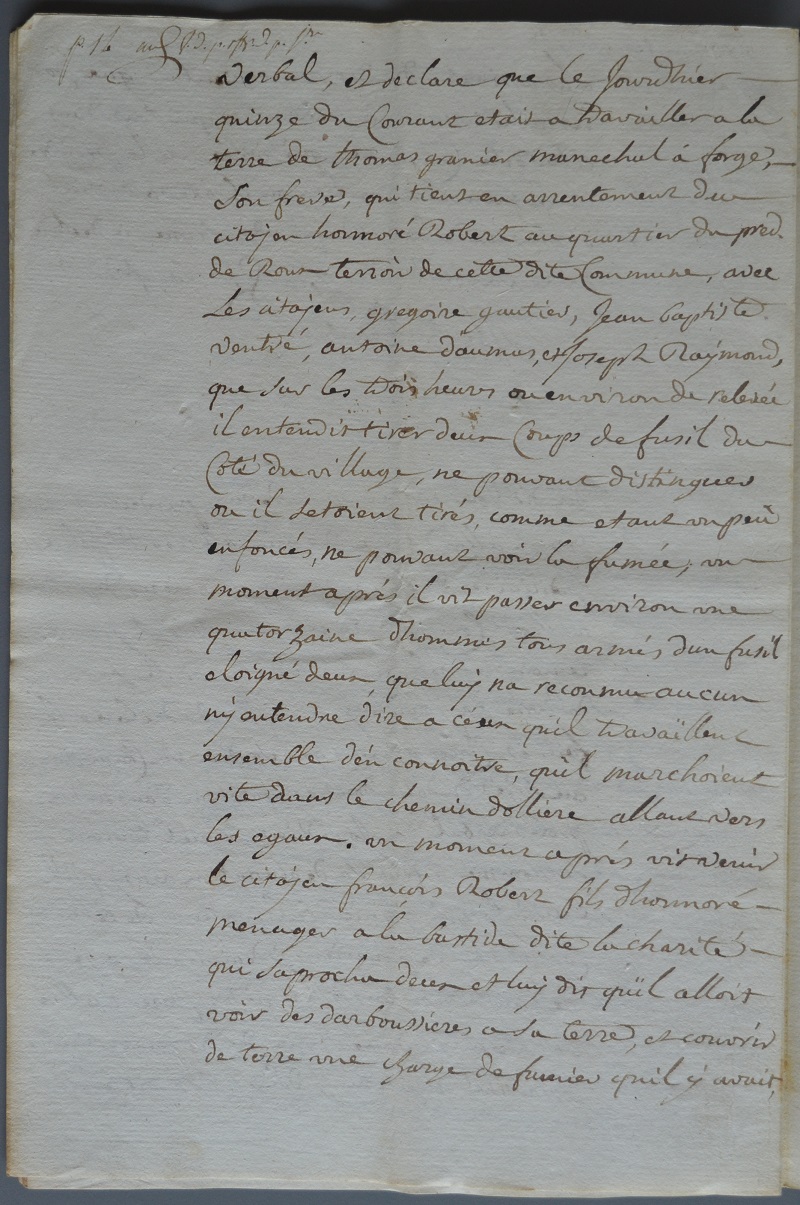 verbal, et declare que le jourdhier
quinze du Courant etait a travailler a la
terre de thomas granier marechal á forge,
Son frere, qui tient en arrentement du
citojen honnoré Robert au quartier du pred.
de Roux terroir de cette dite Commune, avec
Les citojens, gregoire gautier, Jean baptiste
ventré, antoine daumas, et Joseph Raÿmond,
que sur les trois heures ou environ de relevée
il entendit tirer deux Coups de fusil du
Coté du village, ne pouvant distinguer
ou il setoient tirés, comme etant un peu
enfoncés, ne pouvant voir la fumée, un
moment aprés il vit passer environ une
quatorzaine d'hommes tous armés dun fusil
eloigné deux, que luy na reconnu aucun
ny entendre dire a céux qu'il travaïllent
ensemble dén connoitre, quil marchoient
vite dans le chemin dolliere allant vers
les egaux. un moment aprés vit venir
le citojen françois Robert fils dhonnoré
menager a la bastide dite la charité
qui saprocha deux et luy dit quïl alloit
voir des darboussieres a sa terre, et couvrir
de terre une charge de fumier quil y avait,